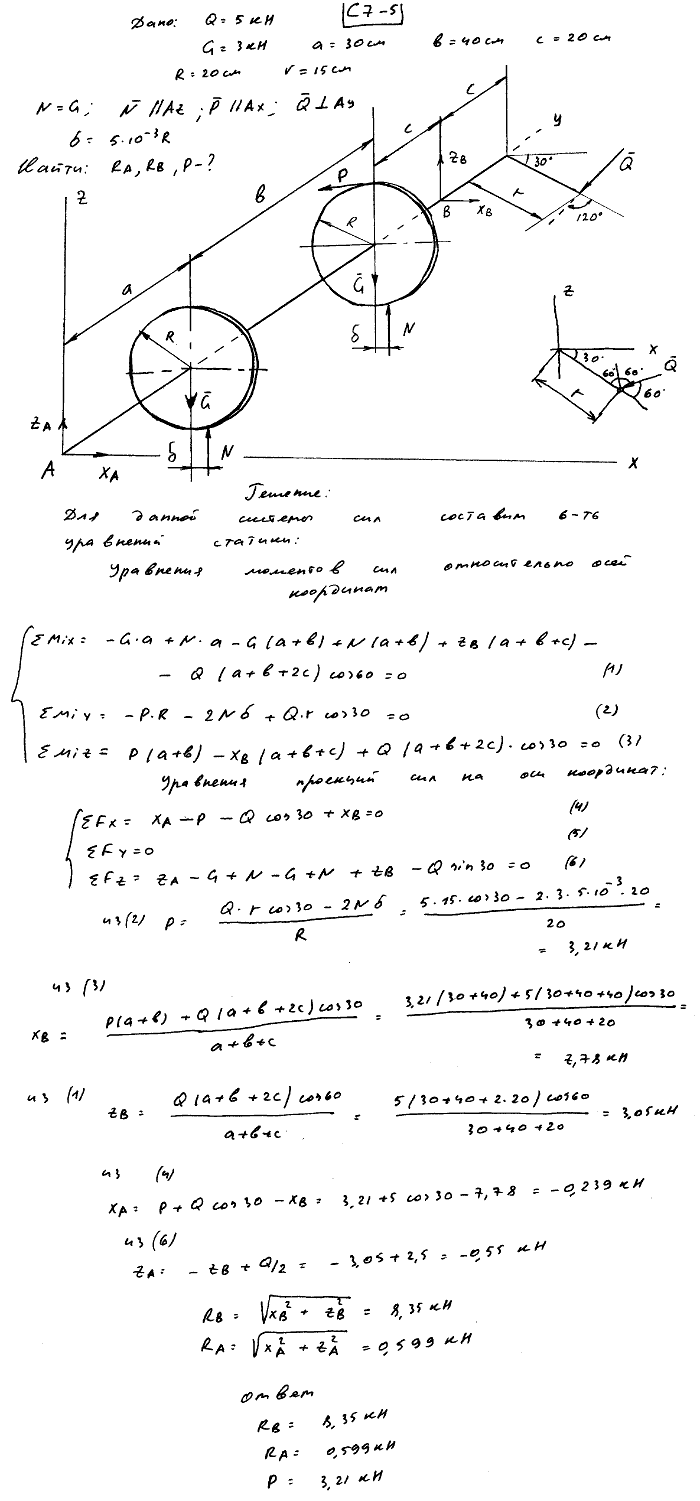 Дано: Q = 5 кН
С7-5
G = 3 кН a = 30 см в = 40 см c = 20 см
R = 20 см r = 15 см
N = G; N̄ // Az; P̄ // Ax; Q̄ ⊥ Ay
δ = 5·10⁻³R
Найти: RA, RB, P - ?
z
a
в
c
c
y
P
zB
30°
Q̄
R
B
xB
r
120°
Ḡ
δ
N
R
Ḡ
zA
A
xA
δ
N
x
z
30°
x
Q̄
60° 60°
60°
r
Решение:
Для данной системы сил составим 6-ть
уравнений статики:
Уравнения моментов сил относительно осей
координат
ΣMix = -G·a + N·a - G(a+в) + N(a+в) + zB(a+в+c) -
- Q(a+в+2c) cos60 = 0 (1)
ΣMiy = -P·R - 2Nδ + Q·r cos30 = 0 (2)
ΣMiz = P(a+в) - xB(a+в+c) + Q(a+в+2c)·cos30 = 0 (3)
Уравнения проекций сил на оси координат:
ΣFx = xA - P - Q cos30 + xB = 0 (4)
ΣFy = 0 (5)
ΣFz = zA - G + N - G + N + zB - Q sin30 = 0 (6)
из (2) P = (Q·r cos30 - 2Nδ)/R = (5·15·cos30 - 2·3·5·10⁻³·20)/20 =
= 3,21 кН
из (3)
xB = (P(a+в) + Q(a+в+2c) cos30)/(a+в+c) = (3,21(30+40) + 5(30+40+40) cos30)/(30+40+20) =
= 7,78 кН
из (1)
zB = (Q(a+в+2c) cos60)/(a+в+c) = (5(30+40+2·20) cos60)/(30+40+20) = 3,05 кН
из (4)
xA = P + Q cos30 - xB = 3,21 + 5 cos30 - 7,78 = -0,239 кН
из (6)
zA = -zB + Q/2 = -3,05 + 2,5 = -0,55 кН
RB = √(xB² + zB²) = 8,35 кН
RA = √(xA² + zA²) = 0,599 кН
ответ
RB = 8,35 кН
RA = 0,599 кН
P = 3,21 кН